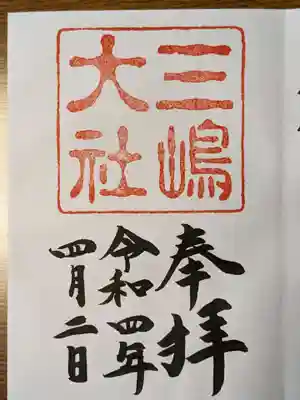 三嶋
大社
奉拝
令和四年
四月二日